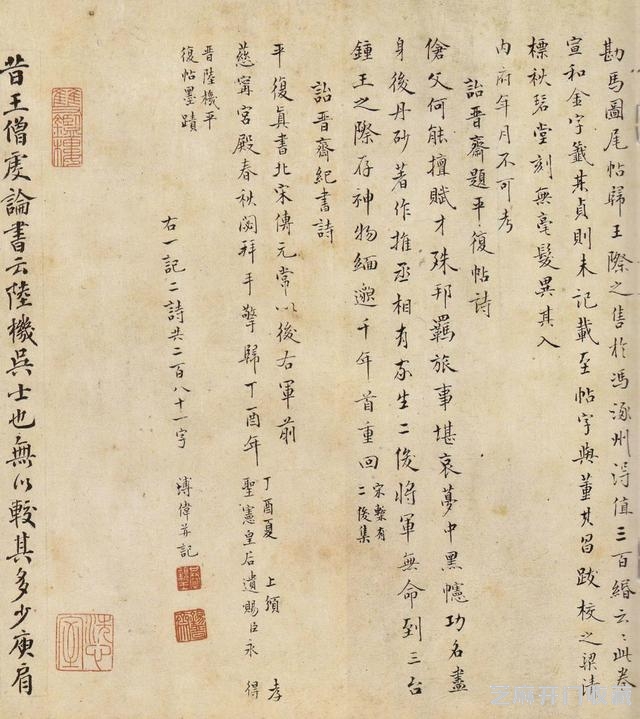 勘馬圖尾帖歸王際之售於馮涿州得值三百緡云云此卷
宣和金字籤其貞則未記載至帖字與董其昌跋校之梁清
標秋碧堂刻無毫髮異其入
內府年月不可考
詒晉齋題平復帖詩
傖父何能擅賦才殊邦羈旅事堪哀夢中黑幰功名盡
身後丹砂著作推丞相有家生二俊將軍無命到三台
鍾王之際存神物緬邈千年首重回
宋槧有
二俊集
詒晉齋紀書詩
平復真書北宋傳元常以後右軍前
慈甯宮殿春秋閟拜手擎歸丁酉年
丁酉夏 上頒 孝
聖憲皇后遺賜臣永 得
晉陸機平
復帖墨蹟
右一記二詩共二百八十一字
溥偉并記
昔王僧虔論書云陸機吳士也無以較其多少庾肩